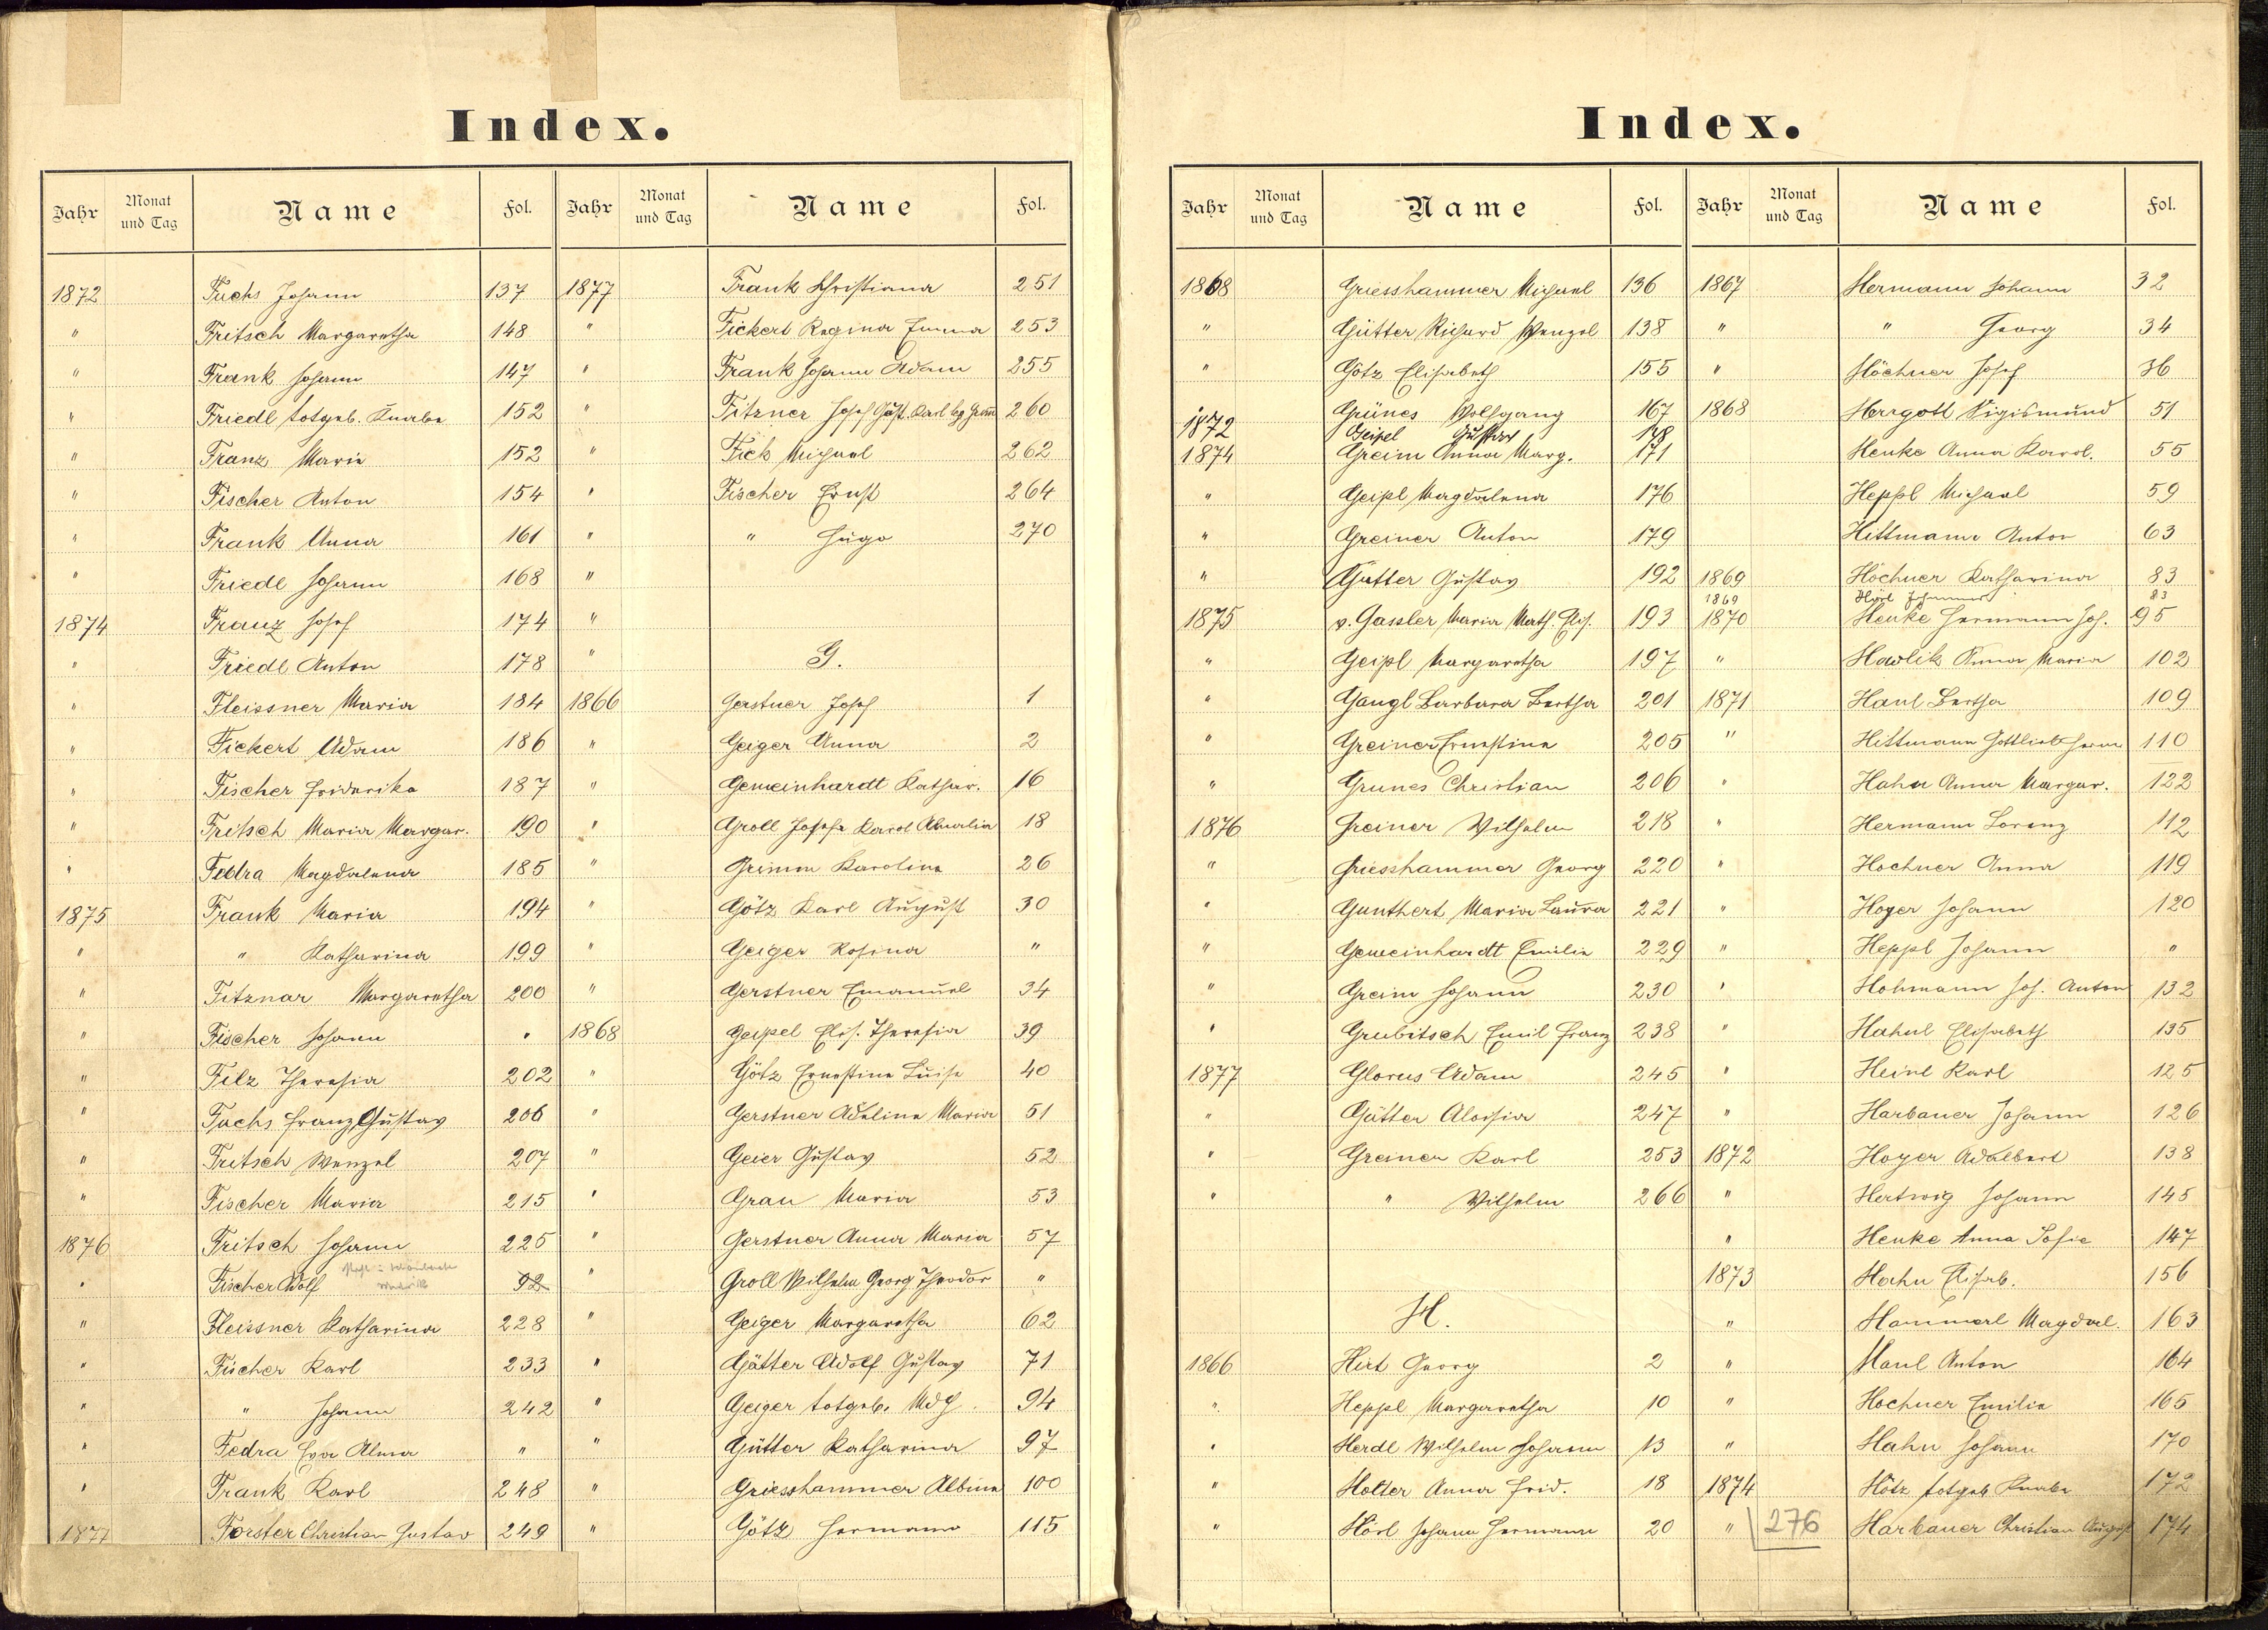 Index.
Jahr Monat und Tag Name Fol. Jahr Monat und Tag Name Fol.
1872 Fuchs Johann 137
" Fritsch Margaretha 148
" Frank Johann 147
" Friedl totgeb. Knabe 152
" Franz Marie 152
" Fischer Anton 154
" Frank Anna 161
" Friedl Johann 168
1874 Franz Josef 174
" Friedl Anton 178
" Fleissner Maria 184
" Fickert Adam 186
" Fischer Friderika 187
" Fritsch Maria Margar. 190
" Fedra Magdalena 185
1875 Frank Maria 194
" " Katharina 199
" Fitznar Margaretha 200
" Fischer Johann "
" Filz Theresia 202
" Fuchs Franz Gustav 206
" Fritsch Wenzel 207
" Fischer Maria 215
1876 Fritsch Johann 225
" Fischer Adolf 92
" Fleissner Katharina 228
" Fischer Karl 233
" " Johann 242
" Fedra Eva Alma "
" Frank Karl 248
1877 Forster Christian Gustav 249
1877 Frank Christiana 251
" Fickert Regina Emma 253
" Frank Johann Adam 255
" Fitzner Josef Gust. Karl 260
" Fick Michael 262
" Fischer Ernst 264
" " Hugo 270
"
"
" G.
1866 Gerstner Josef 1
" Geiger Anna 2
" Gemeinhardt Kathar. 16
" Groll Josefa Karol Amalia 18
" Grimm Karolina 26
" Götz Karl August 30
" Geiger Rosina "
" Gerstner Emanuel 34
1868 Geipel Elis. Theresia 39
" Götz Ernestine Luise 40
" Gerstner Adeline Maria 51
" Geier Gustav 52
" Grau Maria 53
" Gerstner Anna Maria 57
" Groll Wilhelm Georg Theodor "
" Geiger Margaretha 62
" Gütter Adolf Gustav 71
" Geiger totgeb. Mdch. 94
" Gütter Katharina 97
" Griesshammer Albina 100
" Götz Hermann 115
Index.
Jahr Monat und Tag Name Fol. Jahr Monat und Tag Name Fol.
1868 Griesshammer Michael 136
" Gütter Richard Wenzel 138
" Götz Elisabeth 155
" Grünes Wolfgang 167
1872 Geipel Gustav 148
1874 Greim Anna Marg. 171
" Geipl Magdalena 176
" Greiner Anton 179
" Gütter Gustav 192
1875 v. Gassler Maria Math. Elis. 193
" Geipl Margaretha 197
" Gangl Barbara Bertha 201
" Greiner Ernestine 205
" Grunes Christian 206
1876 Greiner Wilhelm 218
" Griesshammer Georg 220
" Gunthert Maria Laura 221
" Gemeinhardt Emilie 229
" Greim Johann 230
" Grubitsch Emil Franz 238
1877 Glorus Adam 245
" Gütter Aloisia 247
" Greiner Karl 253
" " Wilhelm 266
H.
1866 Hirt Georg 2
" Heppl Margaretha 10
" Herdl Wilhelm Johann 13
" Holter Anna Frid. 18
" Hörl Johann Hermann 20
1867 Hermann Johann 32
" " Georg 34
" Höchner Josef 36
1868 Herrgott Sigismund 51
Henke Anna Karol. 55
Heppl Michael 59
Hittmann Anton 63
1869 Höchner Katharina 83
1869 Hörl Johanna 83
1870 Henke Hermann Joh. 95
" Hawlik Anna Maria 102
1871 Hanl Bertha 109
" Hittmann Gottlieb Herm 110
" Hahn Anna Margar. 122
" Hermann Lorenz 112
" Hochner Anna 119
" Hoyer Johann 120
" Heppl Johann "
" Hohmann Joh. Anton 132
" Hahnl Elisabeth 135
" Heinl Karl 125
" Harbauer Johann 126
1872 Hoyer Adalbert 138
" Hertwig Johann 145
" Henke Anna Sofie 147
1873 Hahn Elisab. 156
" Hammerl Magdal. 163
" Hanl Anton 164
" Hochner Emilie 165
" Hahn Johann 170
1874 Hötz totgeb Knabe 172
" 276 Harbauer Christian August 174